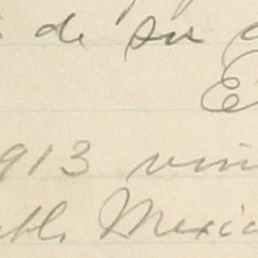 de su
E
913 vin
Mexic